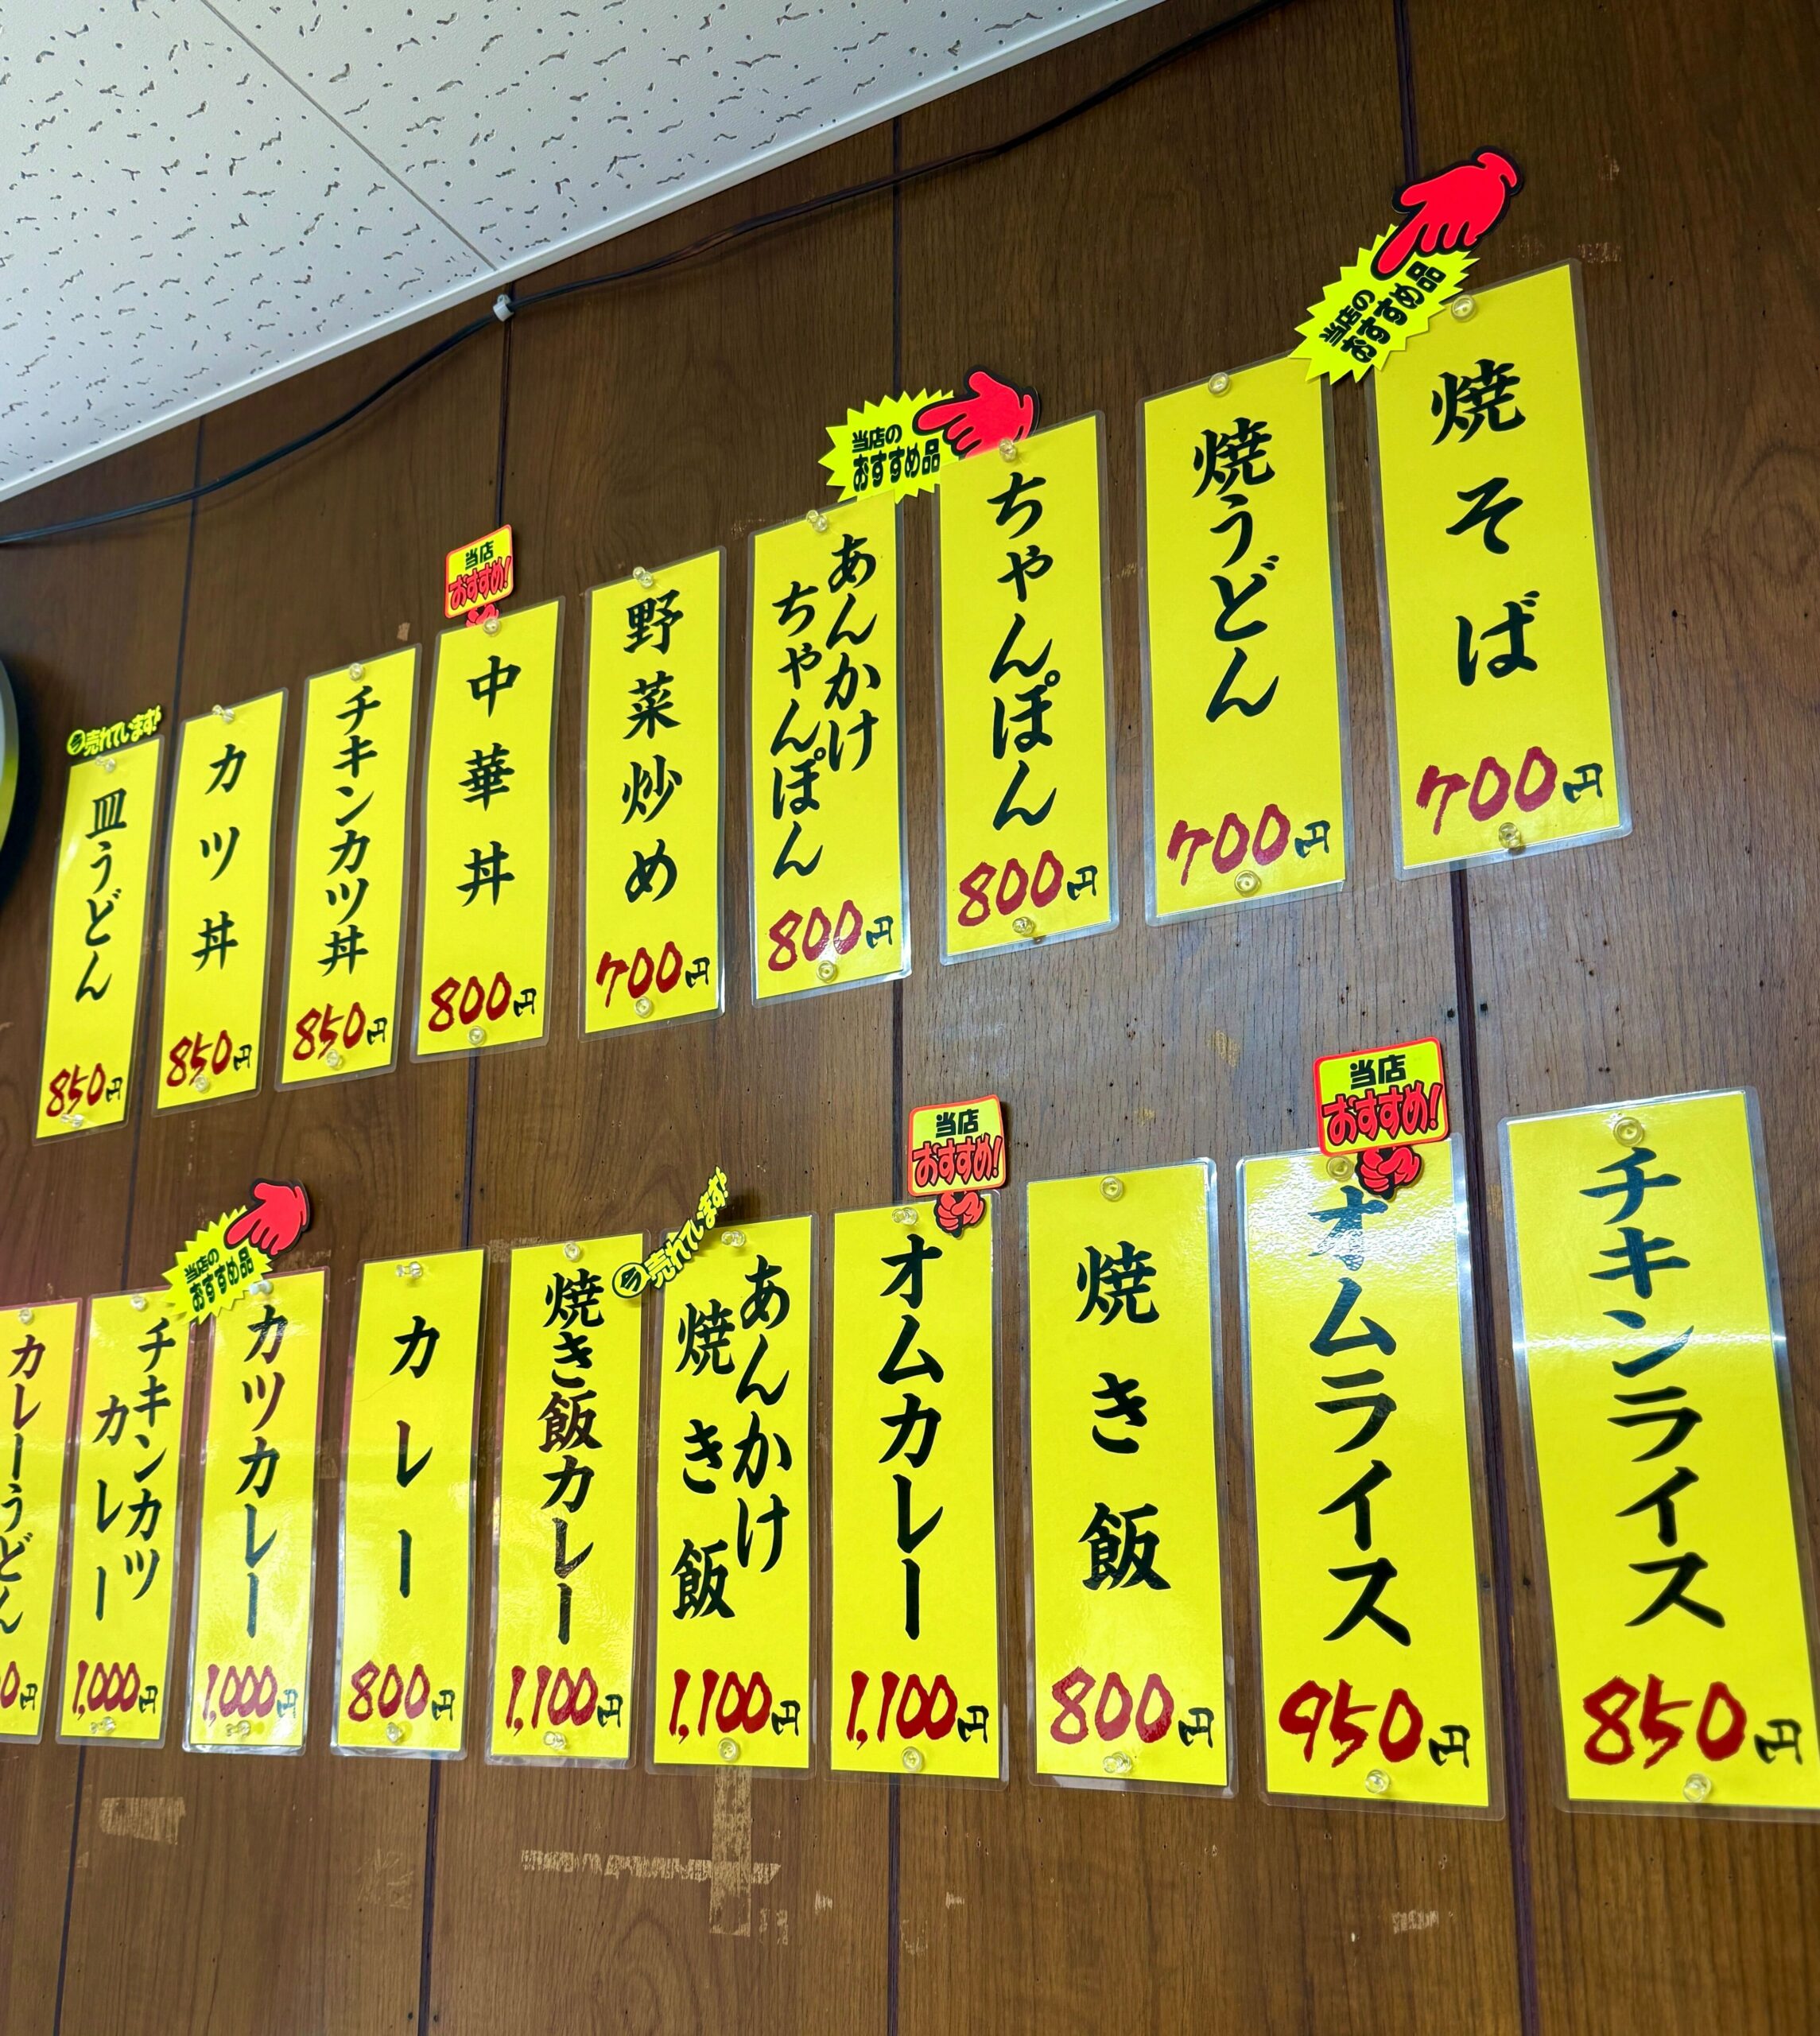 当店の
おすすめ品
焼そば
700円
焼うどん
700円
当店の
おすすめ品
ちゃんぽん
800円
あんかけ
ちゃんぽん
800円
野菜炒め
700円
当店
おすすめ!
中華丼
800円
チキンカツ丼
850円
カツ丼
850円
今売れています!
皿うどん
850円
チキンライス
850円
当店
おすすめ!
オムライス
950円
焼き飯
800円
当店
おすすめ!
オムカレー
1,100円
今売れています!
あんかけ
焼き飯
1,100円
焼き飯カレー
1,100円
カレー
800円
当店の
おすすめ品
カツカレー
1,000円
チキンカツ
カレー
1,000円
カレーうどん
0円